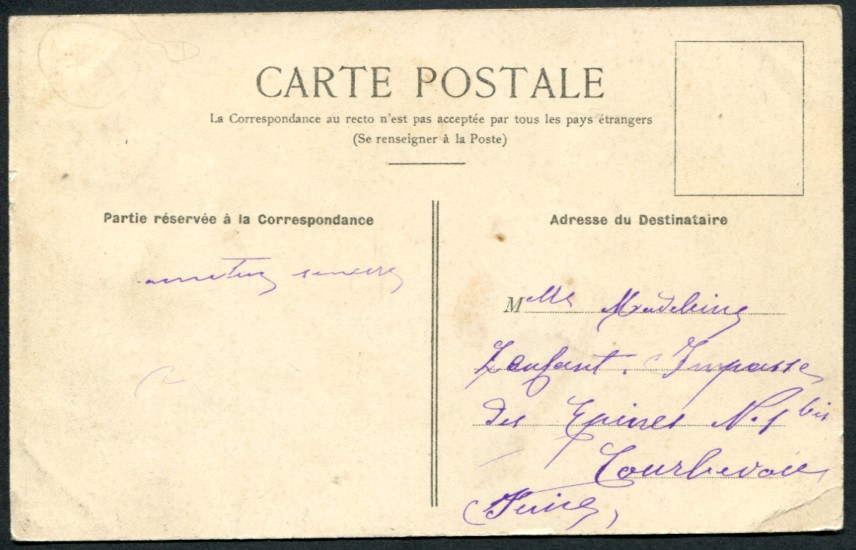 CARTE POSTALE
La Correspondance au recto n'est pas acceptée par tous les pays étrangers
(Se renseigner à la Poste)
Partie réservée à la Correspondance
Adresse du Destinataire
Mlle Madeleine
Lenfant. Impasse
des Epines No 1 bis
Courbevoie
Seine